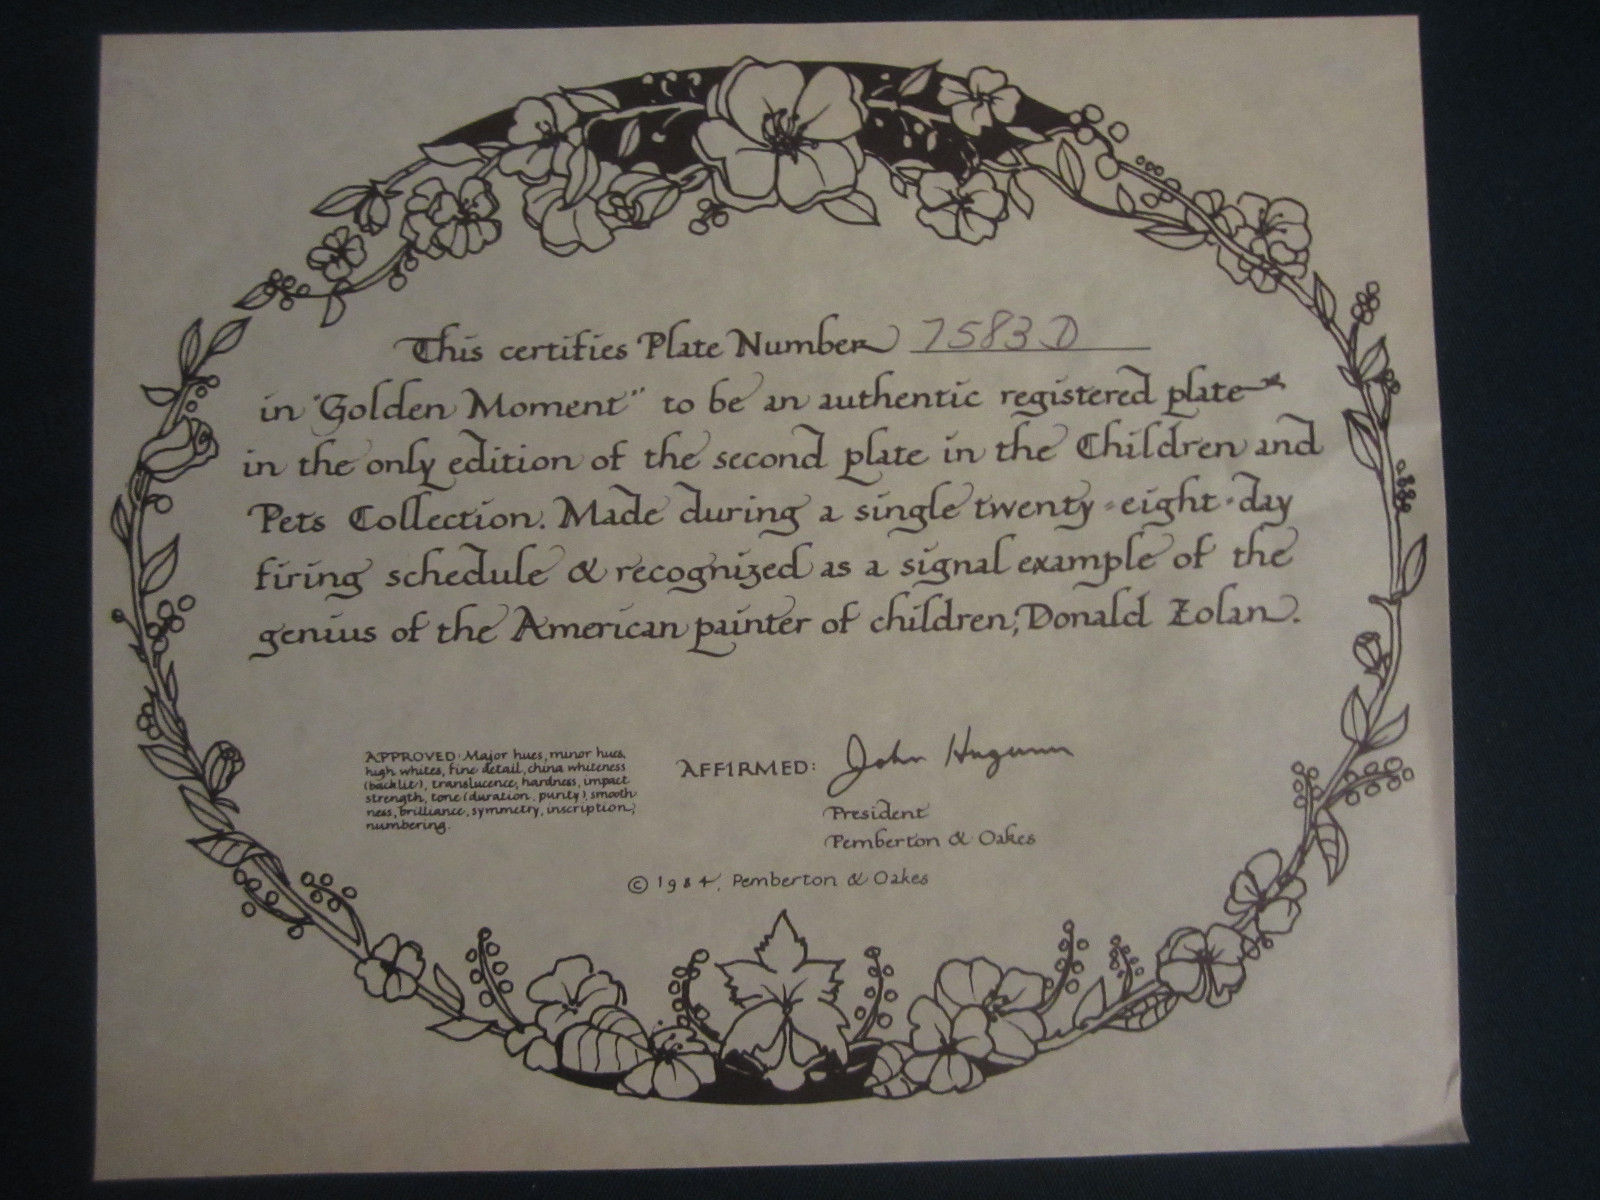 This certifies Plate Number 7583 D
in "Golden Moment" to be an authentic registered plate
in the only edition of the second plate in the Children and
Pets Collection. Made during a single twenty-eight-day
firing schedule & recognized as a signal example of the
genius of the American painter of children, Donald Zolan.
APPROVED: Major hues, minor hues,
high whites, fine detail, china whiteness
(backlit), translucence, hardness, impact
strength, tone (duration, purity), smooth-
ness, brilliance, symmetry, inscription,
numbering.
AFFIRMED: John Hugunin
President
Pemberton & Oakes
© 1984, Pemberton & Oakes